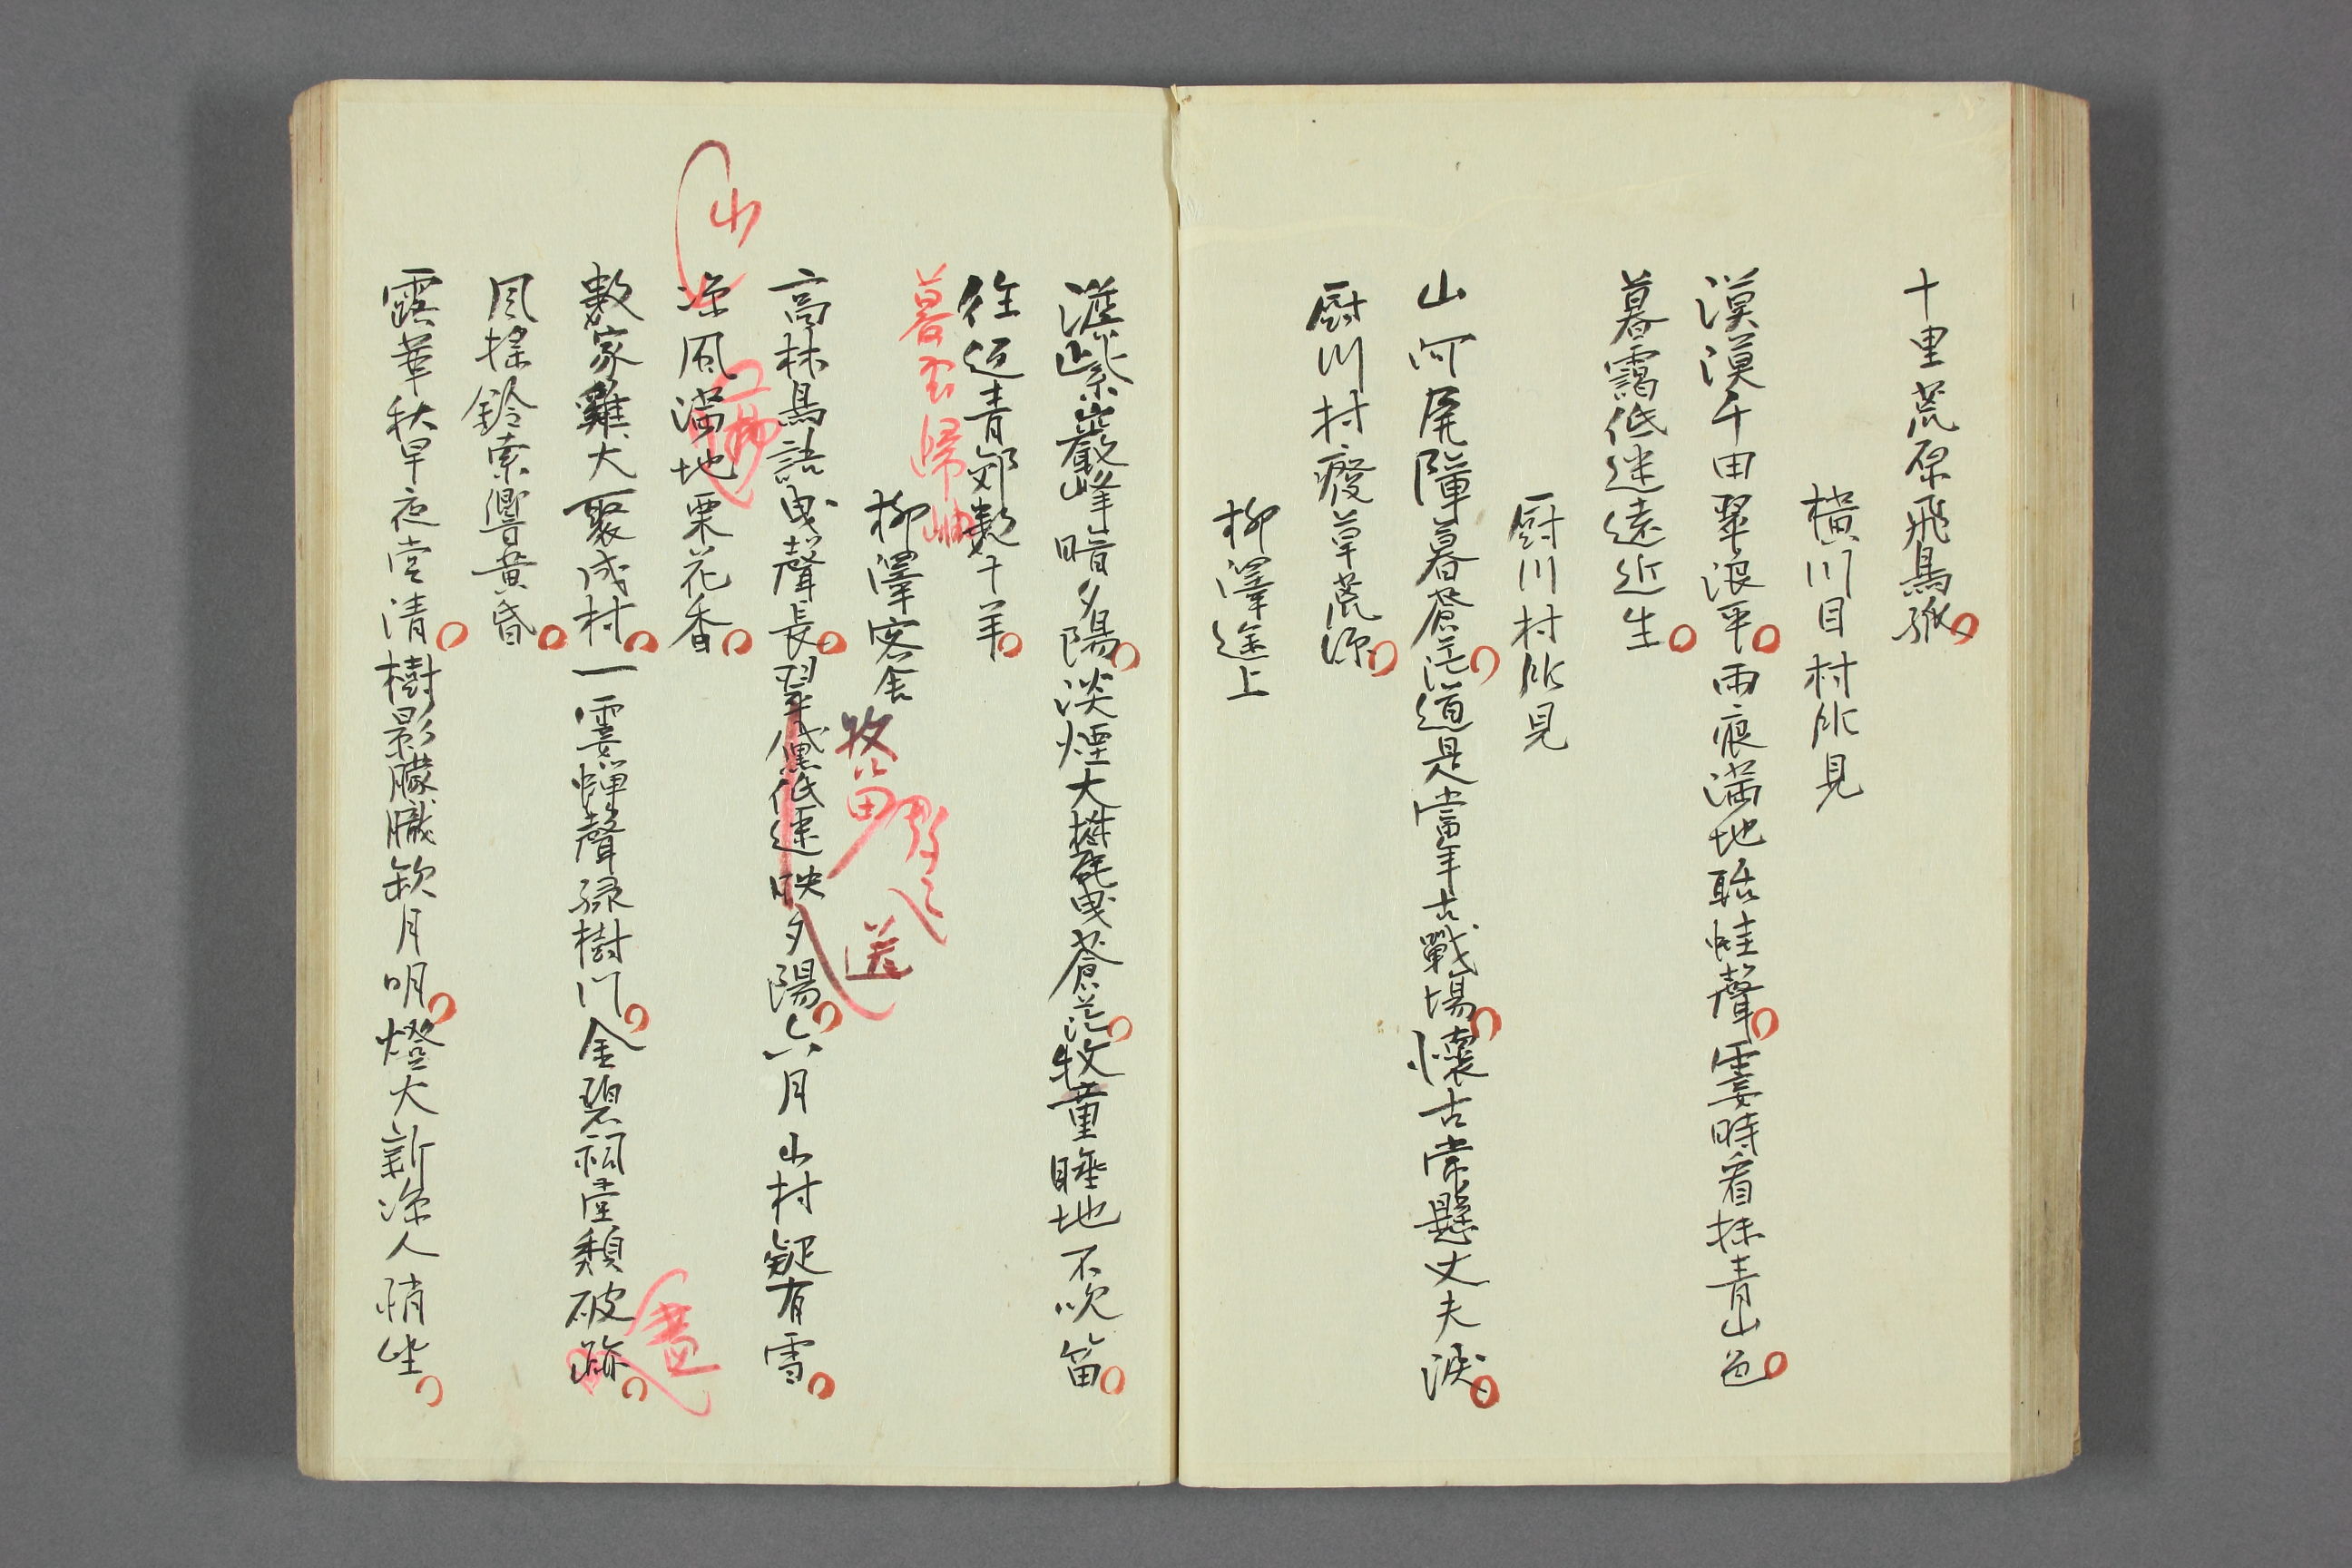 十里荒原飛鳥孤
橫川目村所見
漠漠千田翠浪平雨痕滿地聒蛙聲霎時看抹青山色
暮靄低迷遠近生
厨川村所見
山河屏障暮蒼茫道是當年古戰場懷古常懸丈夫淚
厨川村癈草荒涼
柳澤途上
巖峰暗夕陽淡煙大曳蒼茫牧童睡地不吹笛
往返青郊數千羊
暮雲歸岫
柳澤客舍
牧笛
送
高林鳥語曳聲長翠黛低迷映夕陽六月山村疑有雪
山
涼風滿地栗花香
數家雞犬聚成村一霎蟬聲綠樹門金碧祠堂頽破
盡
風搖鈴索響黃昏
露華秋早夜堂清樹影朦朧缺月明燈火新涼人悄坐